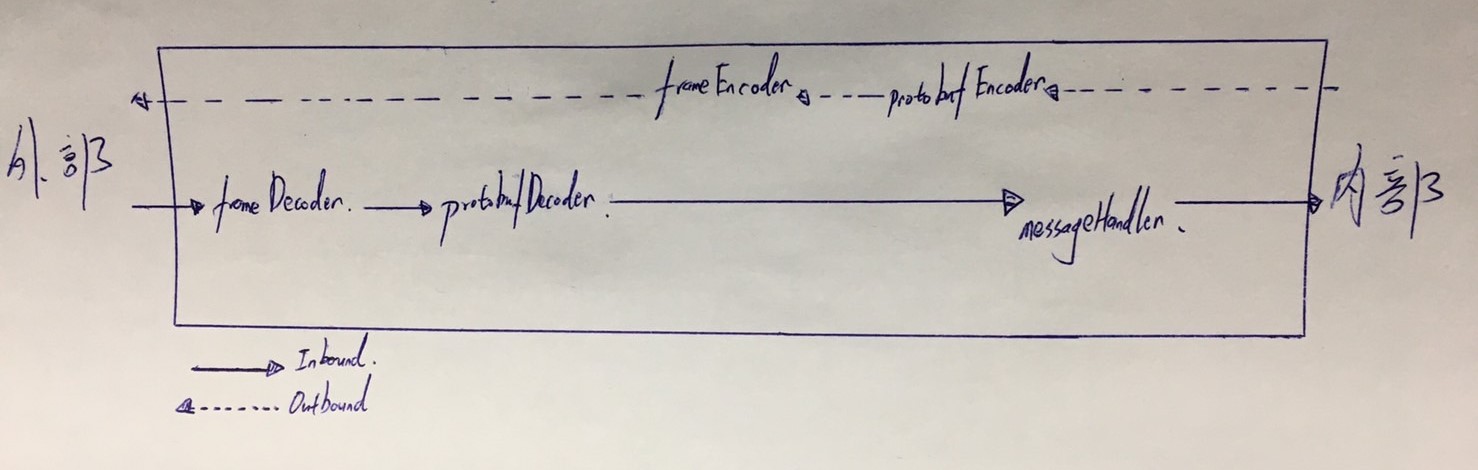 frameEncoder
protobufEncoder
外部
frameDecoder.
protobufDecoder.
messageHandler.
内部
Inbound.
Outbound